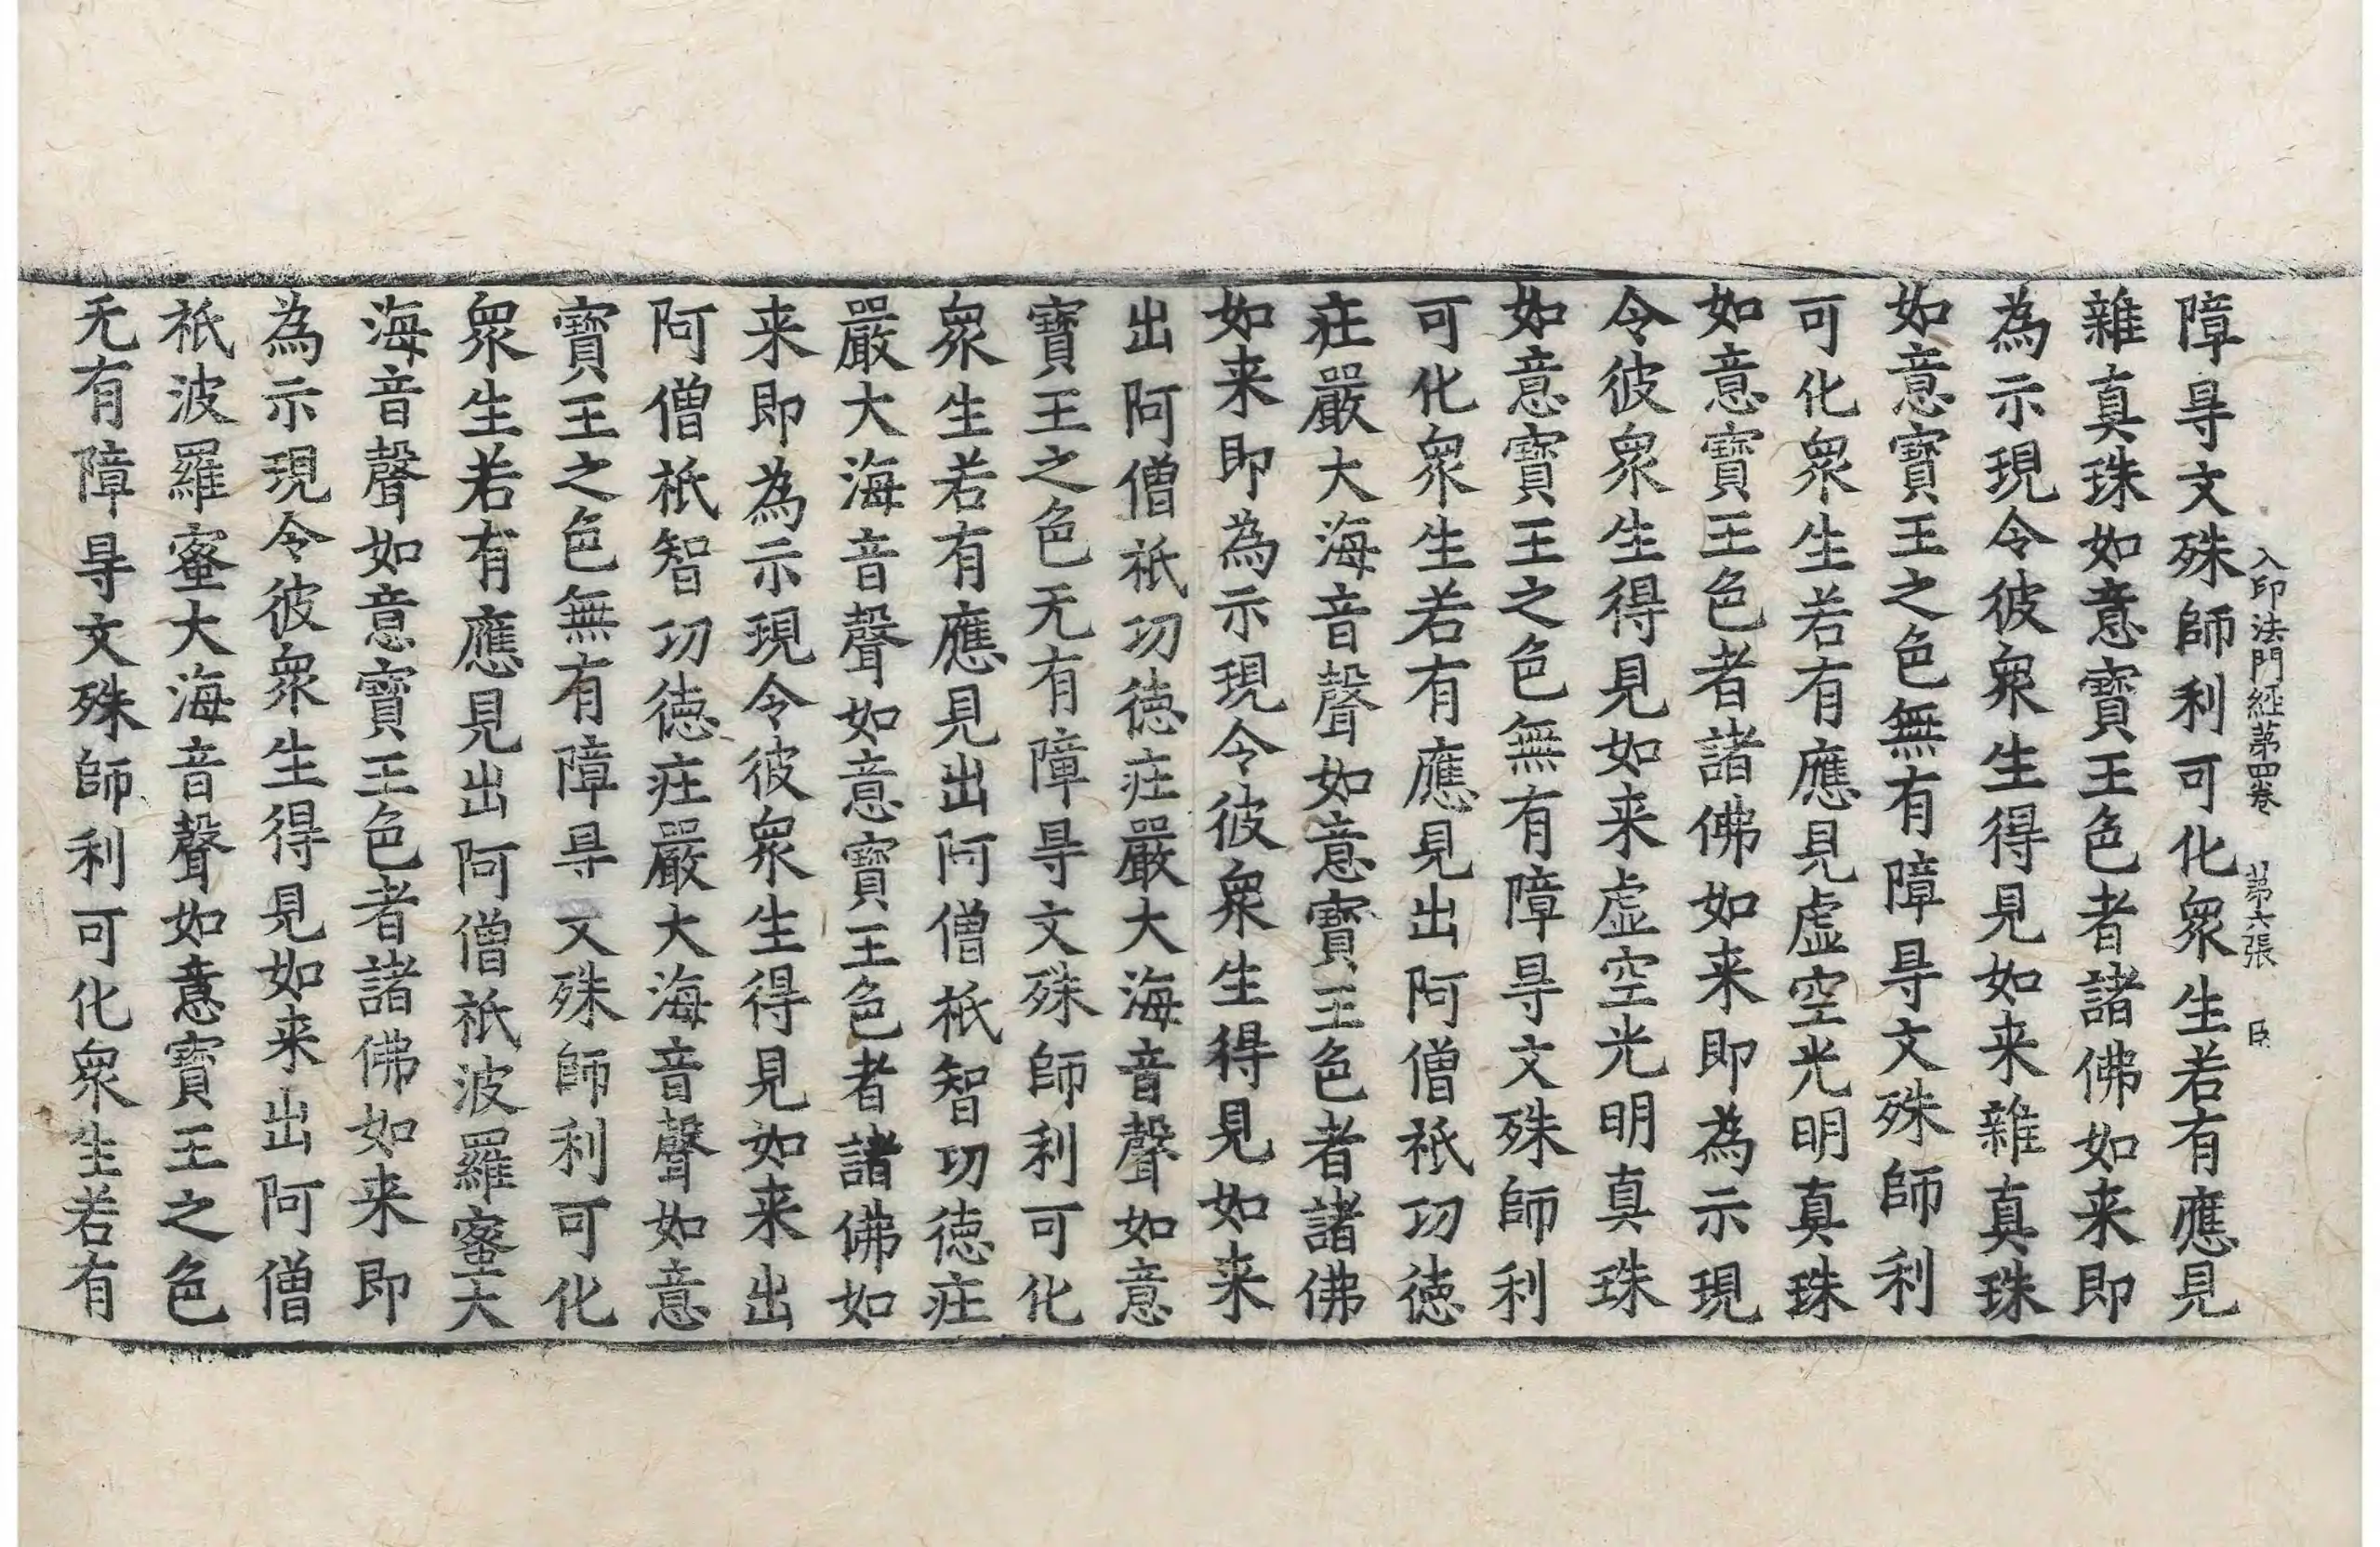 入印法門經苐四卷　苐六張　臣
障㝵文殊師利可化衆生若有應見
雜真珠如意寶王色者諸佛如来即
為示現令彼衆生得見如来雜真珠
如意寶王之色無有障㝵文殊師利
可化衆生若有應見虚空光明真珠
如意寶王色者諸佛如来即為示現
令彼衆生得見如来虚空光明真珠
如意寶王之色無有障㝵文殊師利
可化衆生若有應見出阿僧祇功徳
莊嚴大海音聲如意寶王色者諸佛
如来即為示現令彼衆生得見如来
出阿僧祇功徳莊嚴大海音聲如意
寶王之色无有障㝵文殊師利可化
衆生若有應見出阿僧祇智功徳莊
嚴大海音聲如意寶王色者諸佛如
来即為示現令彼衆生得見如来出
阿僧祇智功徳莊嚴大海音聲如意
寶王之色無有障㝵文殊師利可化
衆生若有應見出阿僧祇波羅蜜大
海音聲如意寶王色者諸佛如来即
為示現令彼衆生得見如来出阿僧
祇波羅蜜大海音聲如意寶王之色
无有障㝵文殊師利可化衆生若有